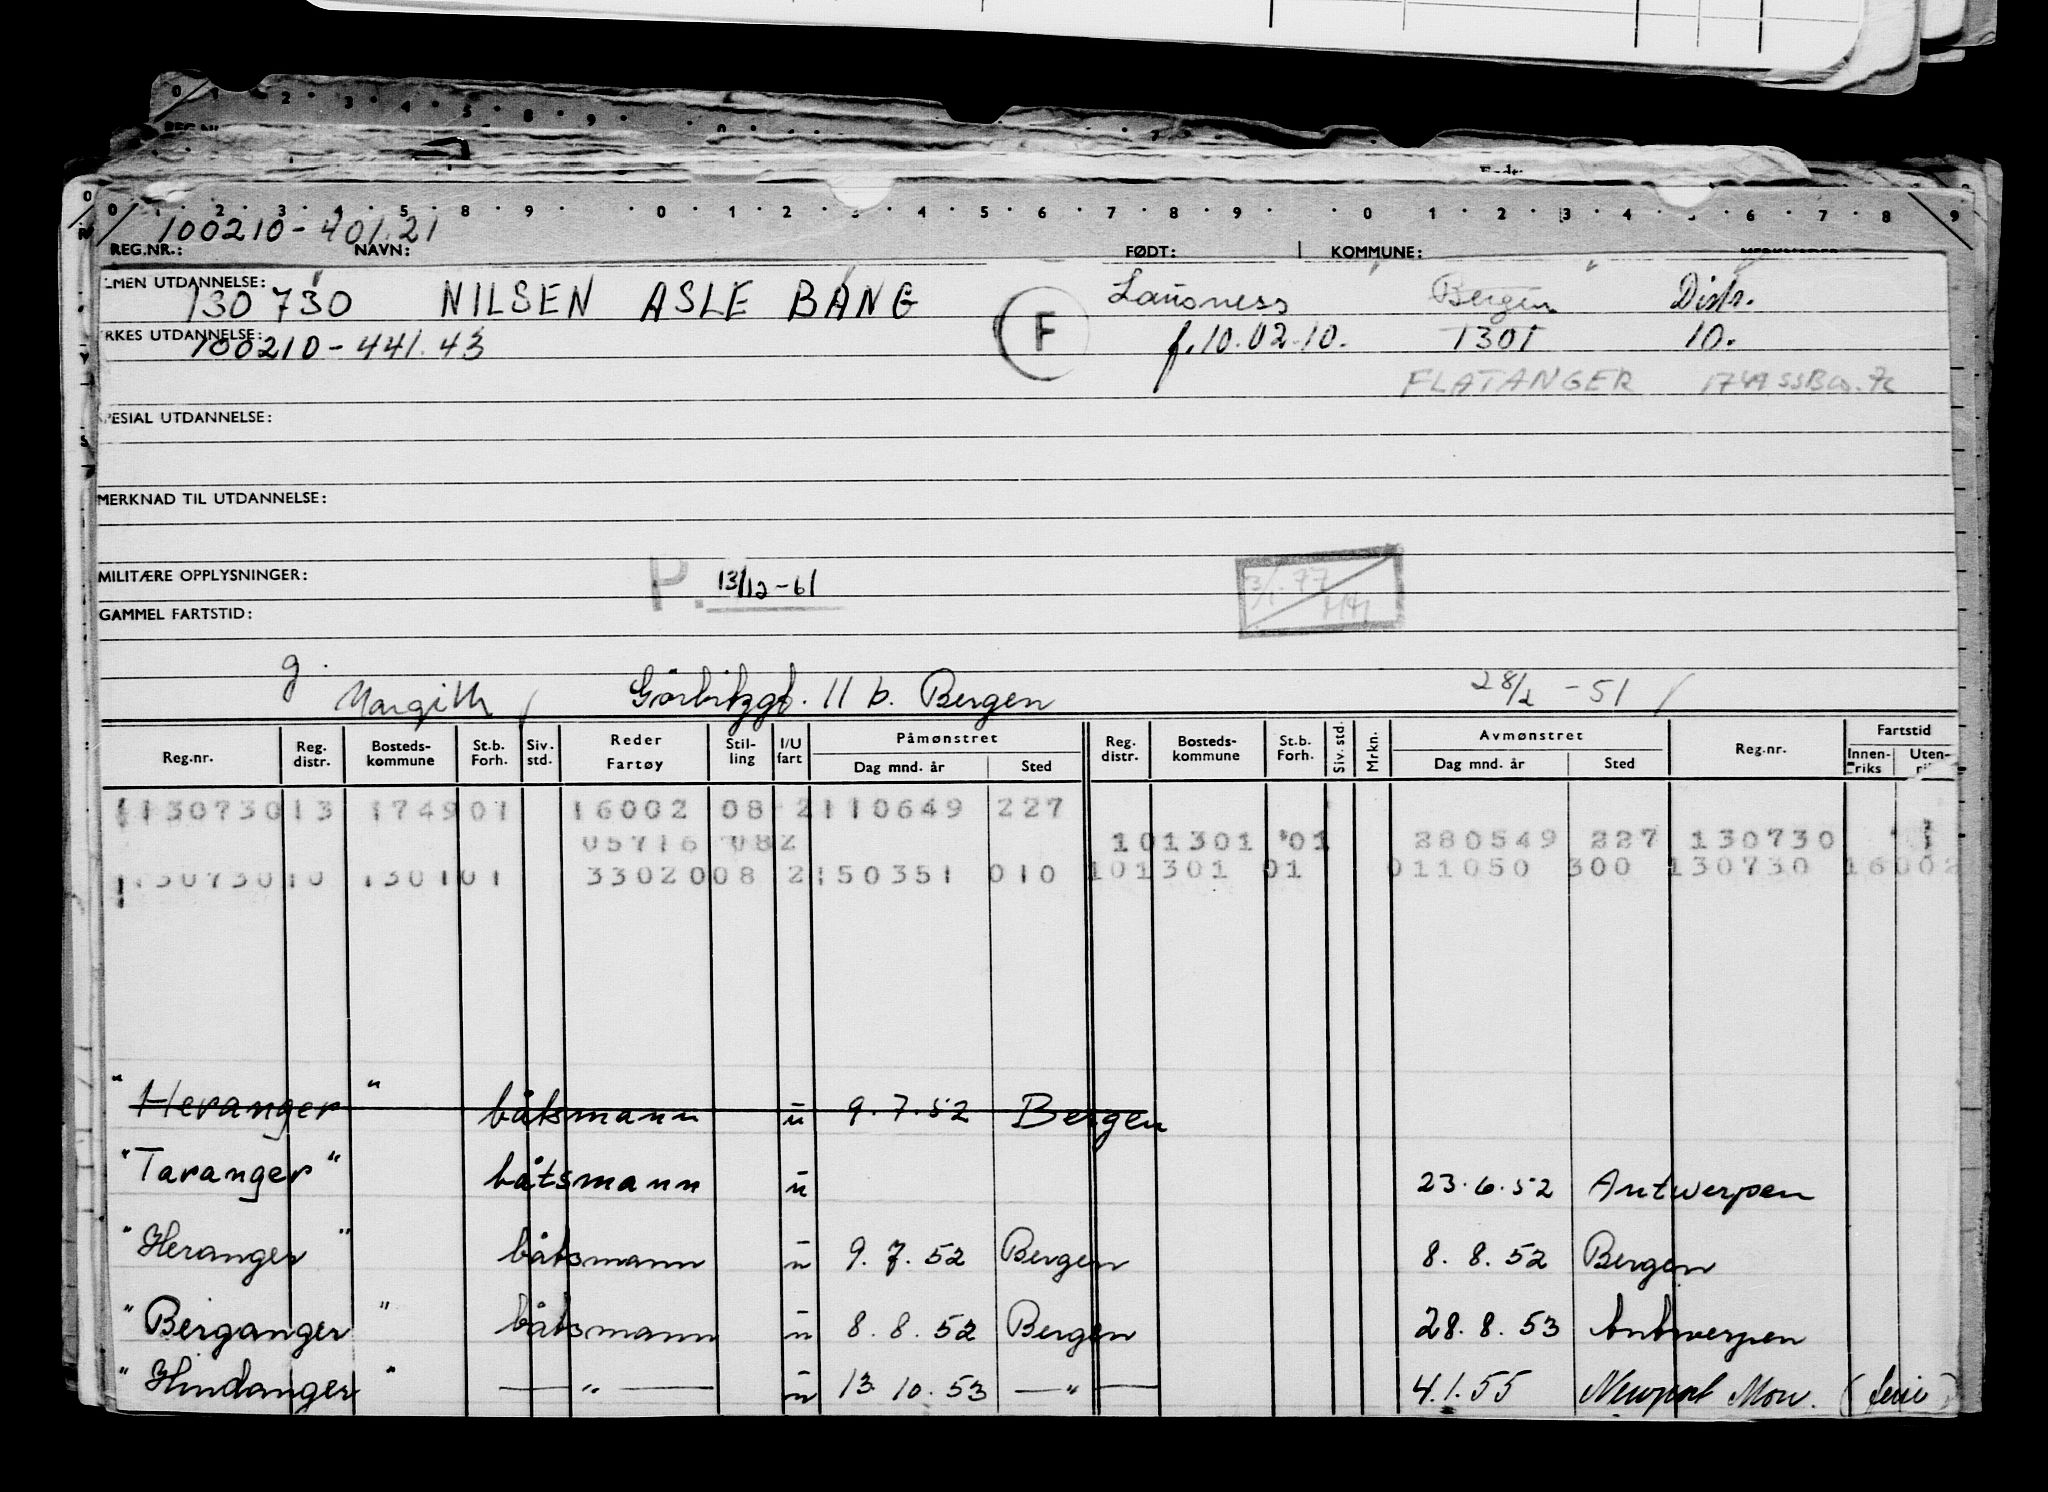 0 1 2 3 4 5 8 9 0
0 1 2 3 4 5 8 9 0 1 2 3 4 5 6 7 8 9 0 1 2 3 4 5 6 7 8 9
100210-401.21
REG.NR.: NAVN: FØDT: KOMMUNE:
MEN UTDANNELSE:
130730 NILSEN ASLE BANG F Lausness Bergen Distr.
RKES UTDANNELSE:
100210-441.43 f.10.02.10. 1301 10.
FLATANGER 1749
PESIAL UTDANNELSE:
MERKNAD TIL UTDANNELSE:
MILITÆRE OPPLYSNINGER: P. 13/12-61 3/1.77
GAMMEL FARTSTID:
g. Margith 11 b. Bergen 28/2-51
Reg.nr. Reg. distr. Bosteds-kommune St.b. Forh. Siv. std. Reder Fartøy Stil-ling I/U fart Påmønstret Dag mnd. år Sted Reg. distr. Bosteds-kommune St.b. Forh. Siv. std. Mrkn. Avmønstret Dag mnd. år Sted Reg.nr. Fartstid Innen-riks Uten-
130730 13 1749 01 16002 08 2 110649 227
05716 08 2 10 1301 01 280549 227 130730
130730 10 1301 01 33020 08 2 150351 010 10 1301 01 011050 300 130730 16002
"Heranger" båtsmann u 9.7.52 Bergen
"Taranger" båtsmann u 23.6.52 Antwerpen
"Heranger" båtsmann u 9.7.52 Bergen 8.8.52 Bergen
"Berganger" båtsmann u 8.8.52 Bergen 28.8.53 Antwerpen
"Hindanger" — " — u 13.10.53 — " — 4.1.55 Newport Mon. (ferie)